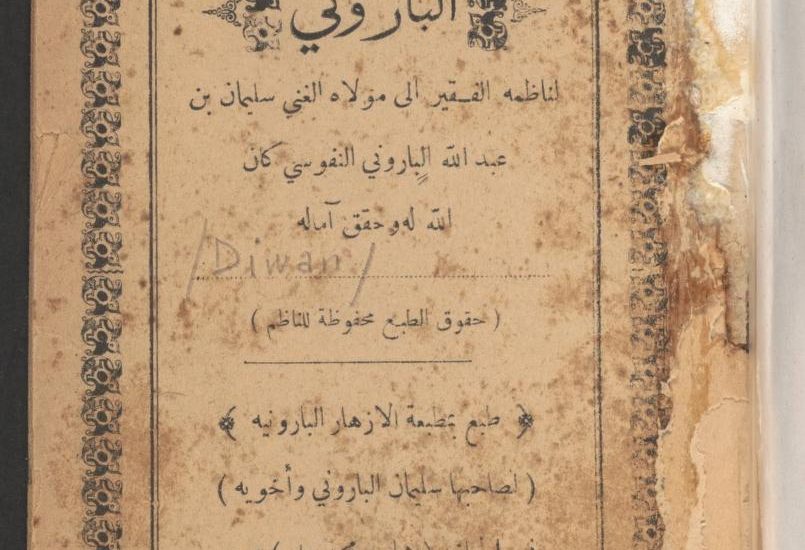 الباروني
لناظمه الفقير الى مولاه الغني سليمان بن
عبد الله الباروني النفوسي كان
الله له وحقق آماله
/Diwan/
( حقوق الطبع محفوظة للناظم )
طبع بمطبعة الازهار البارونيه
( لصاحبها سليمان الباروني وأخويه )